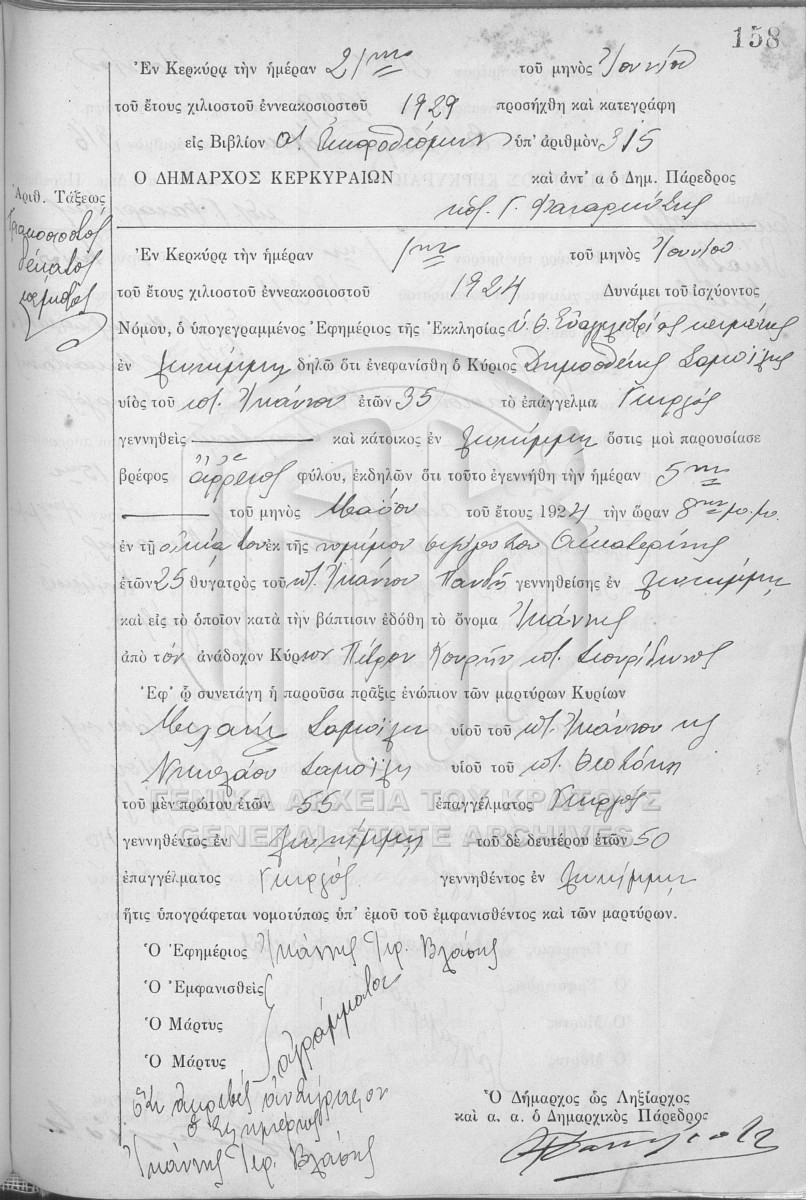 158
Ἐν Κερκύρᾳ τὴν ἡμέραν 21ην τοῦ μηνὸς Ἰουνίου
τοῦ ἔτους χιλιοστοῦ ἐννεακοσιοστοῦ 1929 προσήχθη καὶ κατεγράφη
εἰς Βιβλίον ὑπ' ἀριθμὸν 315
Ὁ ΔΗΜΑΡΧΟΣ ΚΕΡΚΥΡΑΙΩΝ καὶ ἀντ' α ὁ Δημ. Πάρεδρος
Ἀριθ. Τάξεως
Τριακοσιοστὸς
δέκατος
πέμπτος
Ἐν Κερκύρᾳ τὴν ἡμέραν 1ην τοῦ μηνὸς Ἰουνίου
τοῦ ἔτους χιλιοστοῦ ἐννεακοσιοστοῦ 1924 Δυνάμει τοῦ ἰσχύοντος
Νόμου, ὁ ὑπογεγραμμένος Ἐφημέριος τῆς Ἐκκλησίας ὑ. Θ. Εὐαγγελιστρίας κειμένης
ἐν Λευκίμμῃ δηλῶ ὅτι ἐνεφανίσθη ὁ Κύριος Δημοσθένης Σαμοΐλης
υἱὸς τοῦ ποτ. Ἰωάννου ἐτῶν 35 τὸ ἐπάγγελμα Γεωργός
γεννηθεὶς καὶ κάτοικος ἐν Λευκίμμῃ ὅστις μοὶ παρουσίασε
βρέφος ἄρρενος φύλου, ἐκδηλῶν ὅτι τοῦτο ἐγεννήθη τὴν ἡμέραν 5ην
τοῦ μηνὸς Μαΐου τοῦ ἔτους 1924 τὴν ὥραν 8ην μ.μ.
ἐν τῇ οἰκίᾳ του ἐκ τῆς νομίμου συζύγου του Αἰκατερίνης
ἐτῶν 25 θυγατρὸς τοῦ ποτ. Ἰωάννου Πανδῆ γεννηθείσης ἐν Λευκίμμῃ
καὶ εἰς τὸ ὁποῖον κατὰ τὴν βάπτισιν ἐδόθη τὸ ὄνομα Ἰωάννης
ἀπὸ τὸν ἀνάδοχον Κύριον Πέτρον Κουρῆν ποτ. Σπυρίδωνος
Ἐφ' ᾧ συνετάγη ἡ παροῦσα πρᾶξις ἐνώπιον τῶν μαρτύρων Κυρίων
Σαμοΐλη υἱοῦ τοῦ ποτ. Ἰωάννου κ
Νικολάου Σαμοΐλη υἱοῦ τοῦ ποτ. Θεοτόκη
τοῦ μὲν πρώτου ἐτῶν 55 ἐπαγγέλματος Γεωργός
ΓΕΝΙΚΑ ΑΡΧΕΙΑ ΤΟΥ ΚΡΑΤΟΥΣ
GENERAL STATE ARCHIVES
γεννηθέντος ἐν Λευκίμμῃ τοῦ δὲ δευτέρου ἐτῶν 50
ἐπαγγέλματος Γεωργός γεννηθέντος ἐν Λευκίμμῃ
ἥτις ὑπογράφεται νομοτύπως ὑπ' ἐμοῦ τοῦ ἐμφανισθέντος καὶ τῶν μαρτύρων.
Ὁ Ἐφημέριος Ἰωάννης Ἱερ. Βλάσης
Ὁ Ἐμφανισθεὶς
Ὁ Μάρτυς ἀγράμματοι
Ὁ Μάρτυς
Ὅτι ἀκριβὲς ἀντίγραφον
Ὁ Ἐφημέριος
Ἰωάννης Ἱερ. Βλάσης
Ὁ Δήμαρχος ὡς Ληξίαρχος
καὶ α. α. ὁ Δημαρχικὸς Πάρεδρος